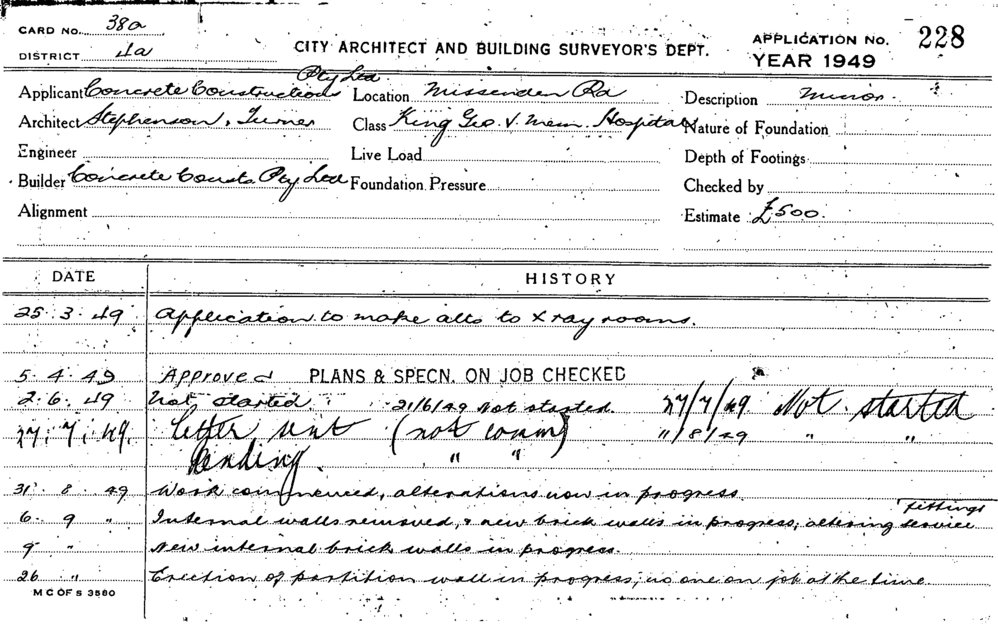 CARD NO. 38a
DISTRICT 4a
CITY ARCHITECT AND BUILDING SURVEYOR'S DEPT.
APPLICATION No. 228
YEAR 1949
Applicant Concrete Constructions Pty Ltd. Location Missenden Rd Description Minor.
Architect Stephenson & Turner Class King Geo. V. Mem. Hospital Nature of Foundation
Engineer Live Load Depth of Footings
Builder Concrete Consts Pty Ltd Foundation Pressure Checked by
Alignment Estimate £500.
DATE HISTORY
25.3.49 Application to make alts to X ray rooms.
5.4.49 Approved PLANS & SPECN. ON JOB CHECKED
2.6.49 Not started 21/6/49 Not started. 27/7/49 Not started
27.7.49. Letter sent (not comm) 11/8/49 " "
Pending. " "
31. 8. 49 Work commenced, alterations now in progress.
6. 9 " Internal walls removed, & new brick walls in progress, altering service fittings
9 " New internal brick walls in progress.
26 " Erection of partition wall in progress, no one on job at the time.
M C OF S 3580